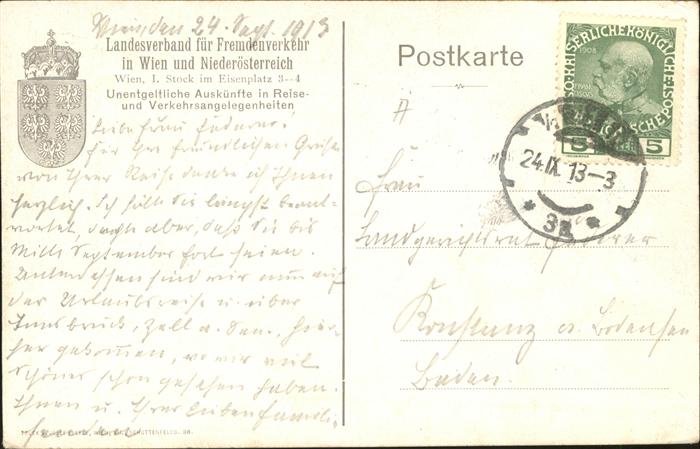 Wien, den 24. Sept. 1913
Landesverband für Fremdenverkehr
in Wien und Niederösterreich
Wien, I. Stock im Eisenplatz 3–4
Unentgeltliche Auskünfte in Reise-
und Verkehrsangelegenheiten
Liebe Frau
Für Ihre freundlichen Grüße
von Ihrer Reise danke ich Ihnen
herzlich. Ich hätte Sie längst beant-
wortet, dachte aber, daß Sie bis
Mitte September fort seien.
Unterdessen sind wir nun auf
der Urlaubsreise u. über
Innsbruck, Zell a. See, hier-
her gekommen, wo wir viel
Schönes schon gesehen haben.
Ihnen u. Ihrer lieben Famili-
Postkarte
KAISERLICHE KÖNIGLICHE ÖSTERREICHISCHE POST
1908
5 HELLER 5
24.IX.13–3
* 3a *
Frau
Landgerichtsrat
Konstanz a. Bodensee
Baden.